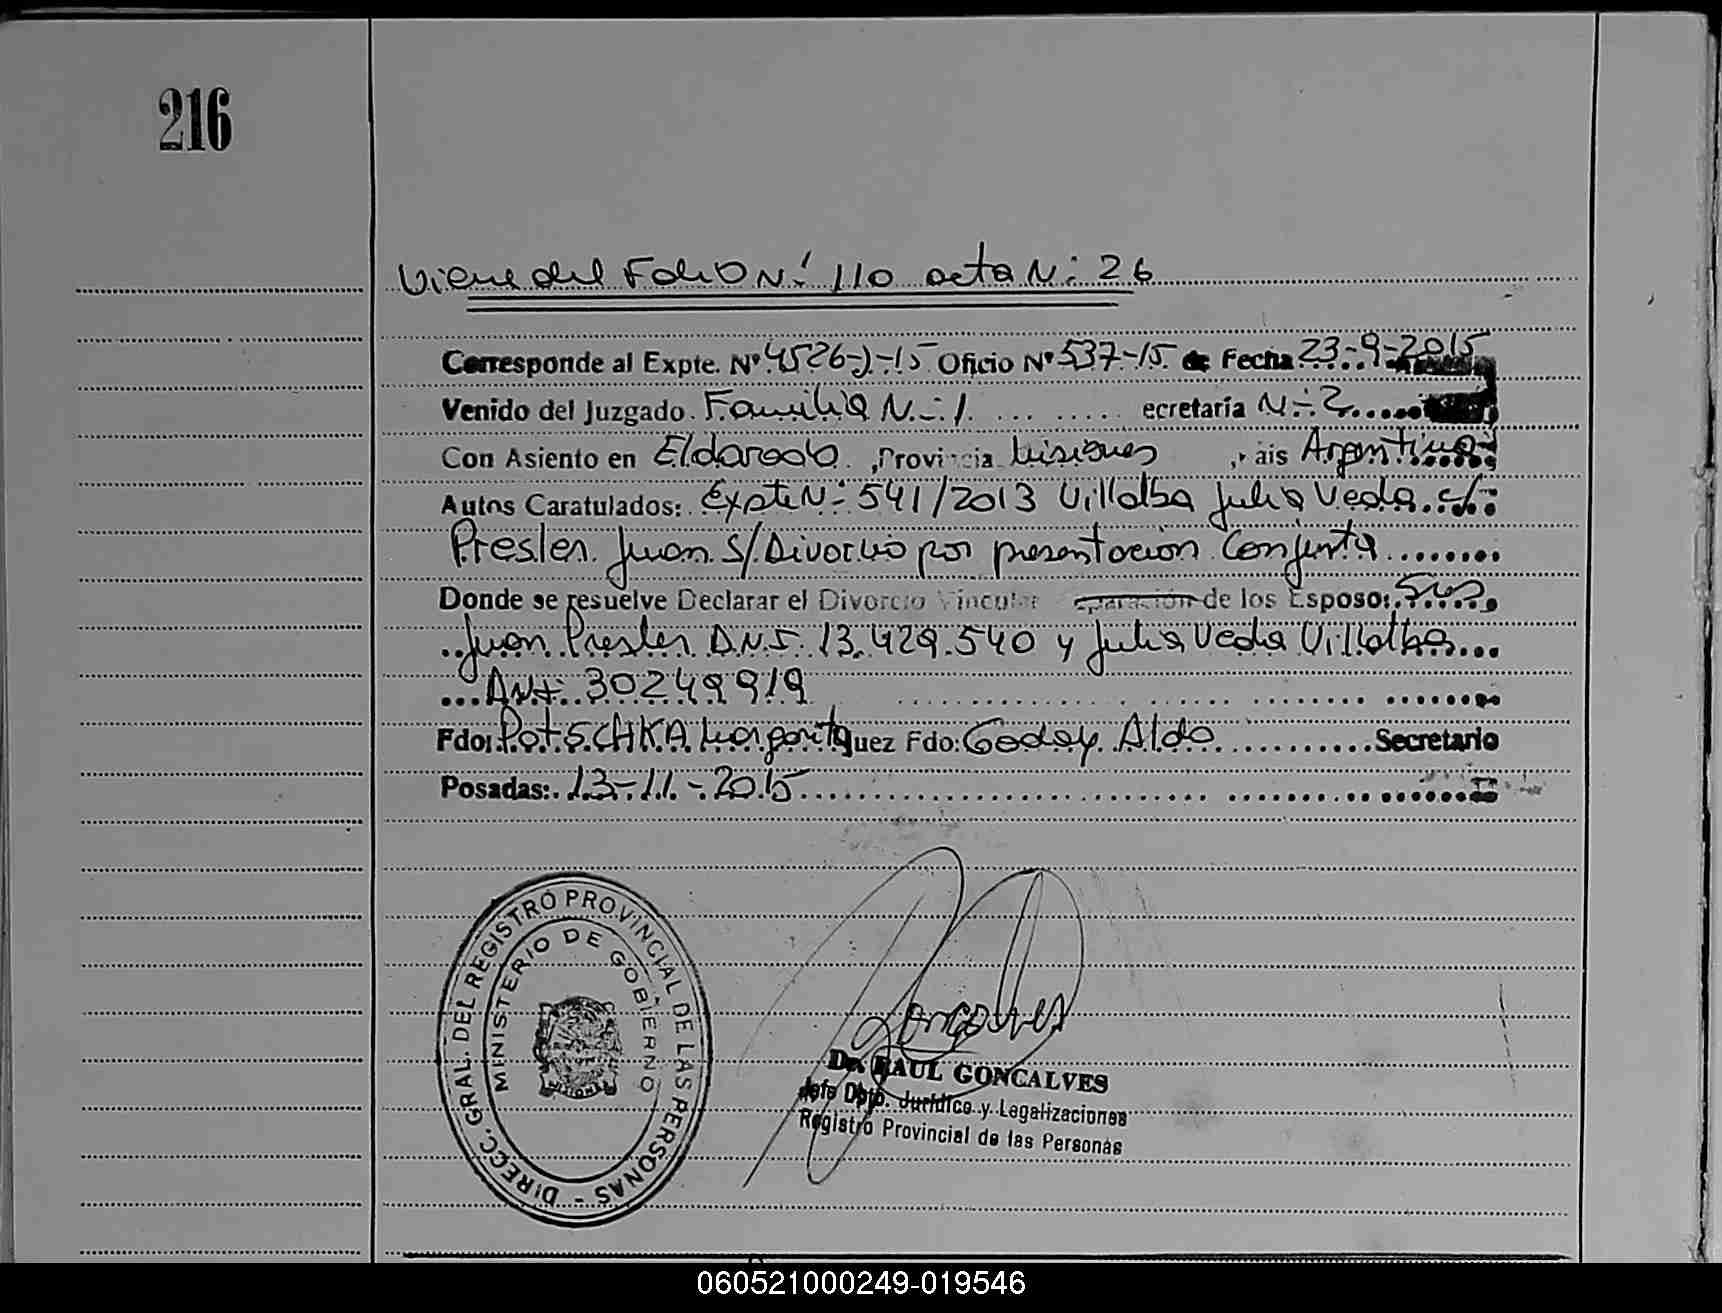 216
Viene del Folio N: 110 acta N: 26
Corresponde al Expte. Nº 4526-J-15 Oficio Nº 537-15 de Fecha 23-9-2015
Venido del Juzgado. Familia N: 1 ecretaría N: 2
Con Asiento en Eldorado, Provincia Misiones, ais Argentina
Autos Caratulados: Expte N: 541/2013 Villalba Julia Veda c/
Presler Juan S/Divorcio por presentacion Conjunta
Donde se resuelve Declarar el Divorcio Vincular Separación de los Esposos: Sres
Juan Presler D.N.I. 13.429.540 y Julia Veda Villalba
DNI: 30249919
Fdo: PotSCHKA Margarita uez Fdo: Godoy Aldo Secretario
Posadas: 13-11-2015
DIRECC. GRAL. DEL REGISTRO PROVINCIAL DE LAS PERSONAS -
MINISTERIO DE GOBIERNO
MISIONES
Goncalves
Dr. RAUL GONCALVES
Jefe Dpto. Jurídico y Legalizaciones
Registro Provincial de las Personas
060521000249-019546